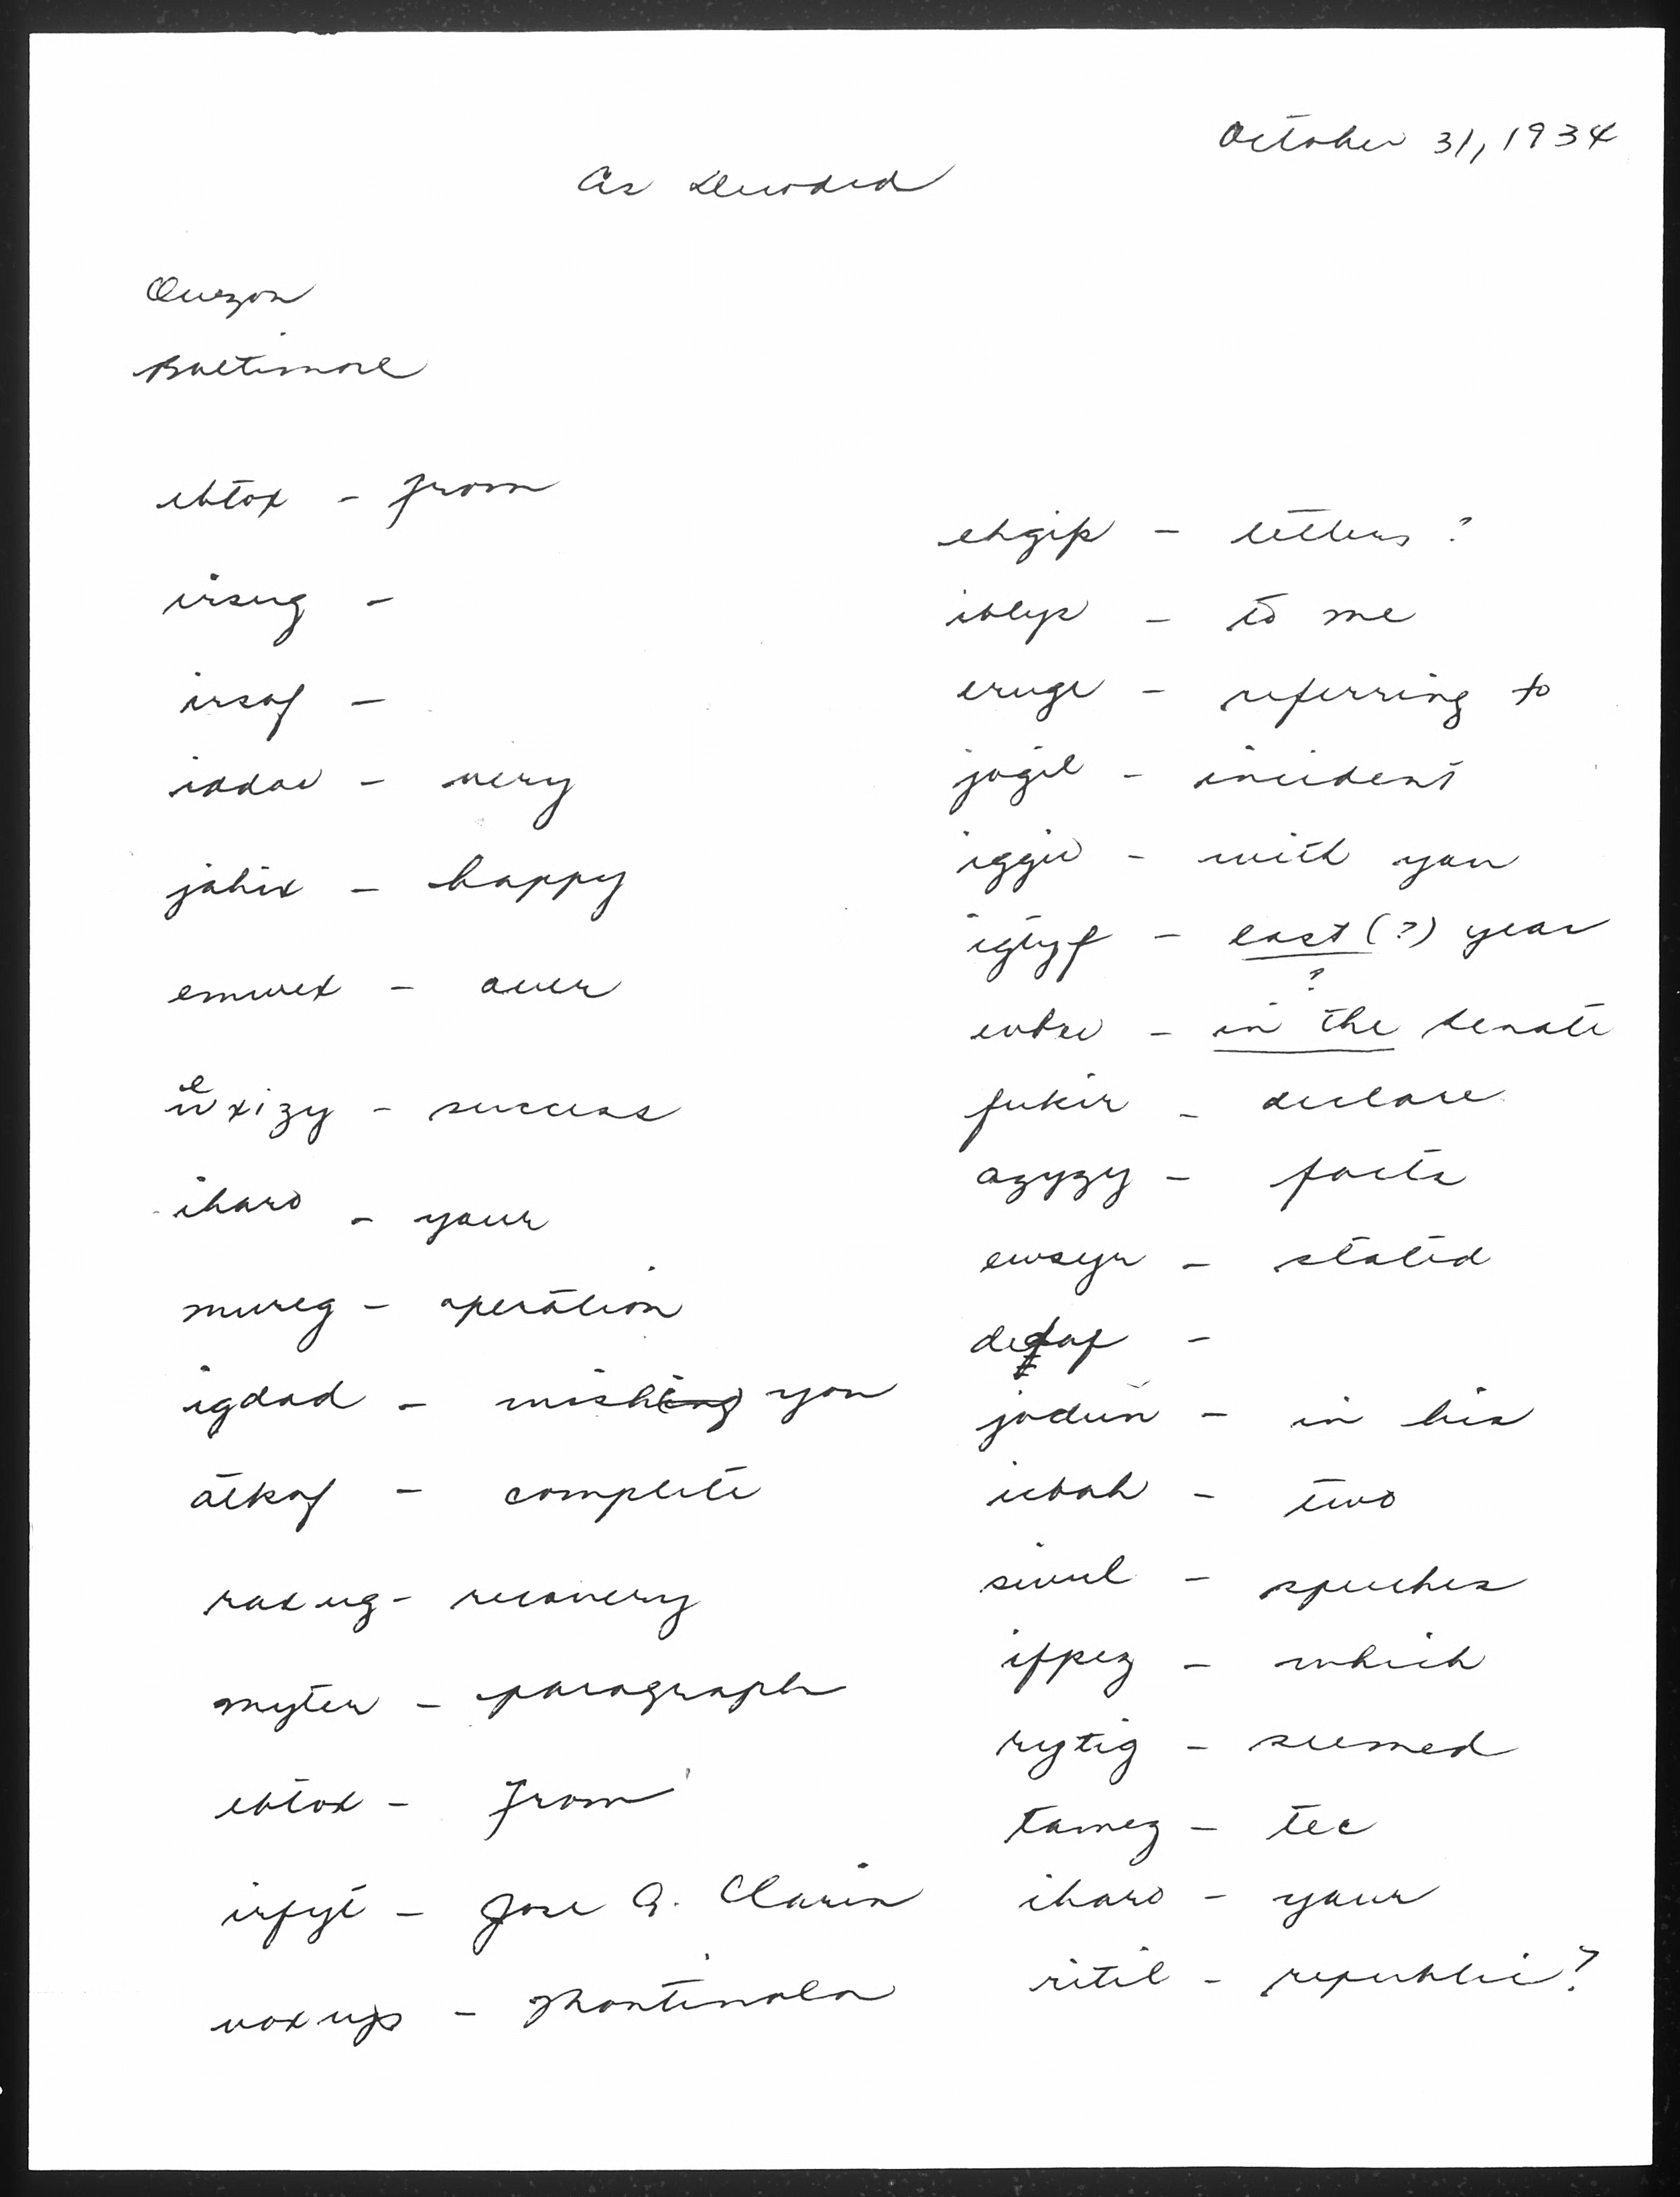 October 31, 1934
As Decoded
Quezon
Baltimore
ebtox - from
irsug -
irsof -
iddav - very
jahix - happy
emwex - over
ewxizy - success
iharo - your
mureg - operation
igdad - wishing you
atkof - complete
raxug - recovery
mytew - paragraph
ebtox - from
irfyt - Jose A. Clarin
voxup - Montinola
ehgip - letters ?
iblyp - to me
eruge - referring to
jogil - incident
iggiv - with you
iglyf - last (?) year
?
- in the senate
fukir - declare
azyzy - facts
ewsyr - stated
-
jodun - in his
icbah - two
sivul - speeches
ifpez - which
rytig - seemed
tamez - tec
iharo - your
ritil - republic?